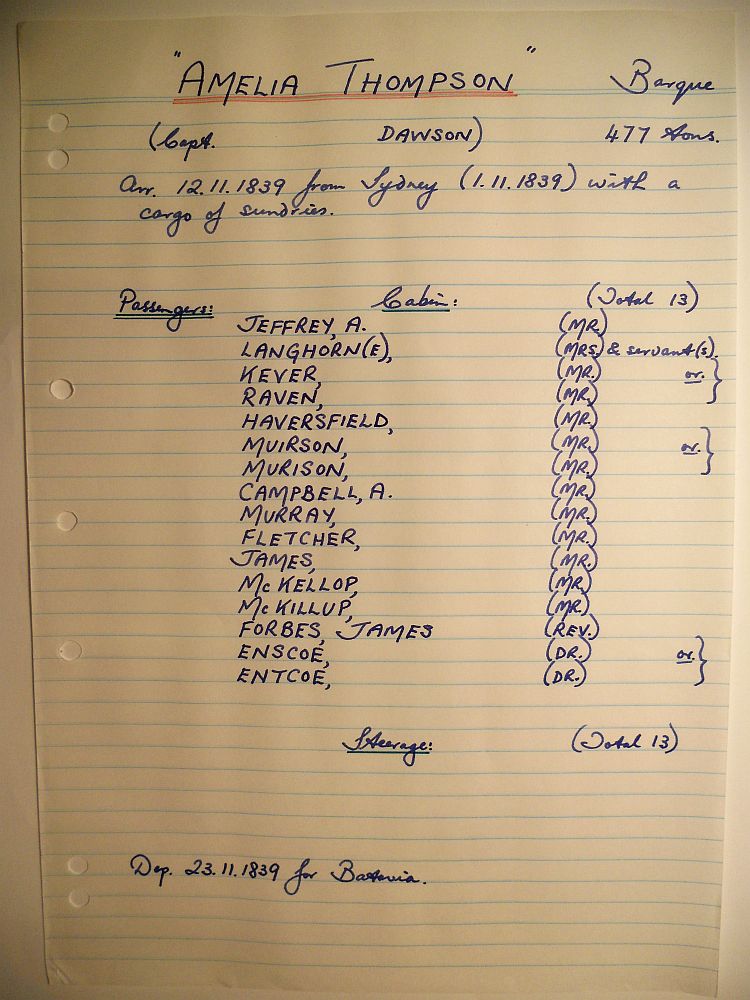 "AMELIA THOMPSON" Barque
(Capt. DAWSON) 477 tons.
Arr. 12.11.1839 from Sydney (1.11.1839) with a
cargo of sundries.
Passengers: Cabin: (Total 13)
JEFFREY, A. (MR.)
LANGHORN(E), (MRS.) & servant(s).
KEVER, (MR.) or }
RAVEN, (MR.)
HAVERSFIELD, (MR.)
MUIRSON, (MR.) or. }
MURISON, (MR.)
CAMPBELL, A. (MR.)
MURRAY, (MR.)
FLETCHER, (MR.)
JAMES, (MR.)
McKELLOP, (MR.)
McKILLUP, (MR.)
FORBES, JAMES (REV.)
ENSCOE, (DR.) or. }
ENTCOE, (DR.)
Steerage: (Total 13)
Dep. 23.11.1839 for Batavia.